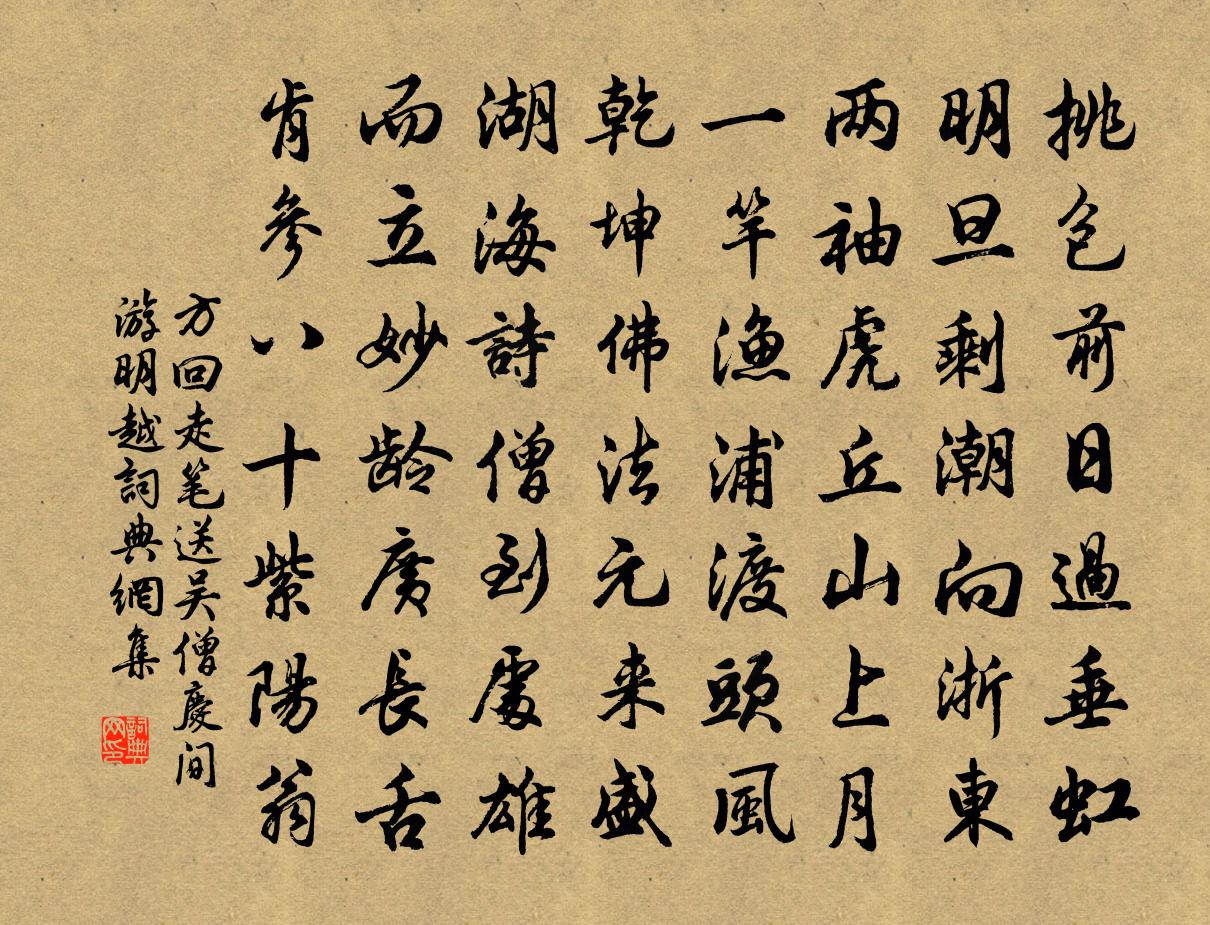 挑包前日過垂虹
明旦剩潮向浙東
两袖虎丘山上月
一竿漁浦渡頭風
乾坤佛法元来盛
湖海詩僧到處雄
而立妙龄廣長舌
肯參八十紫陽翁
方回走笔送吴僧慶间
游明越詞典網集
詞典网印